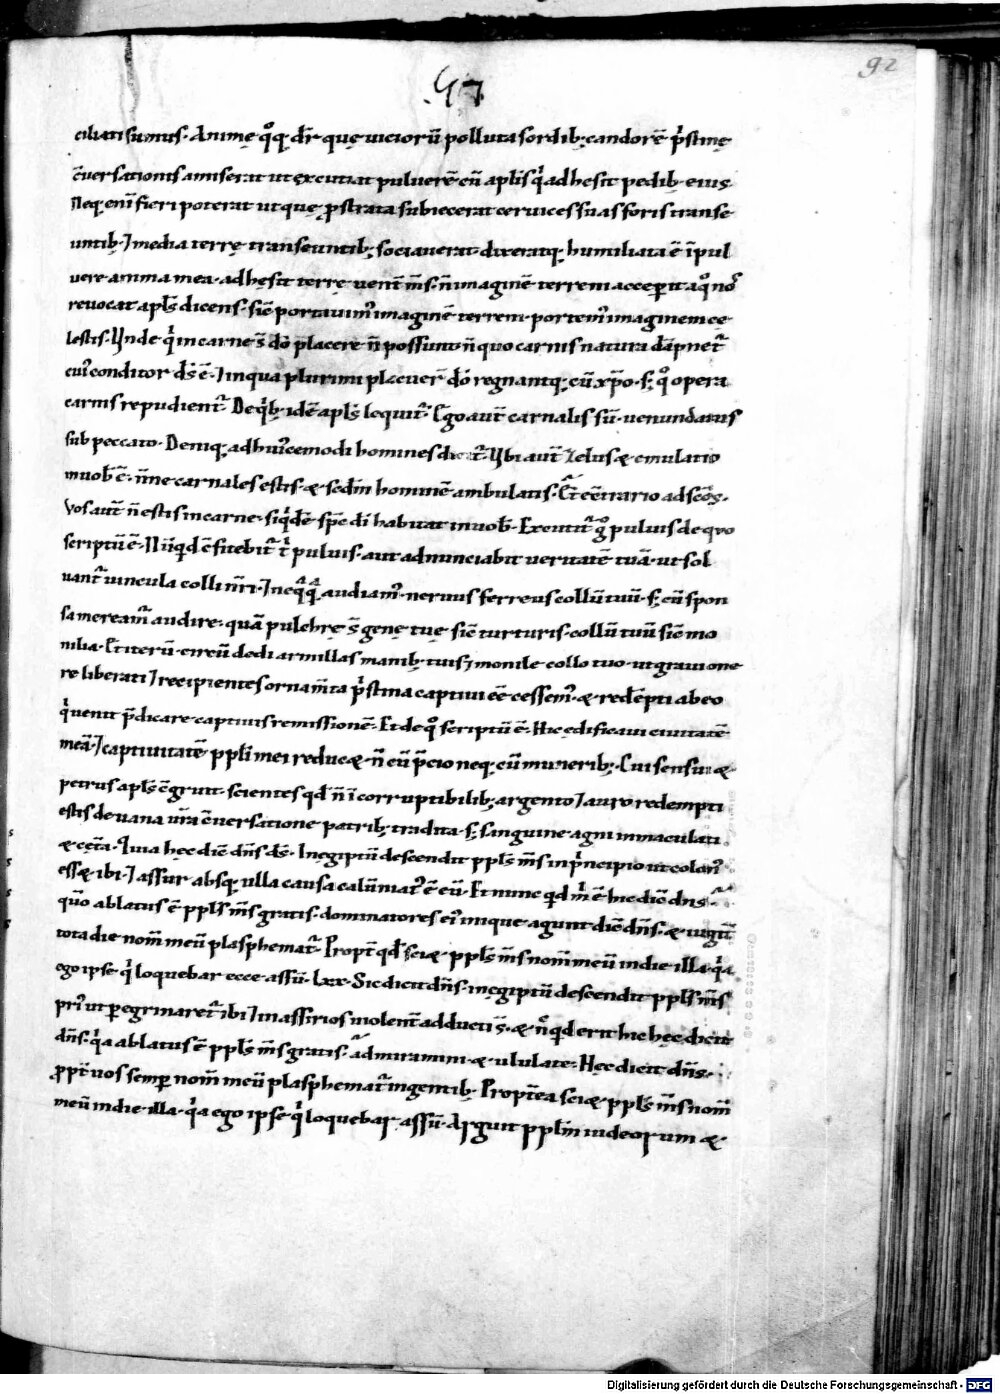 92
ciliati sumus. Animę q̊q; dr̄ quę uiciorū polluta sordib; candorē p̓stinę
c̄uersationis amiserat ut excutiat puluerē cū apl̄is q̓ adhesit pedib; eius
Neq; eni fieri poterat ut quę ꝓstrata subiecerat ceruices suas foris transe
untib; ⁊ media terrę transeuntib; sociauerat diceratq; humiliata ē ī pul
uere anima mea adhęsit terrę uent̄ m̄s. n̄ imaginē terreni acceperit a q̊ nos
reuocat apl̄s dicens. sic̄ portauim᾽ imaginē terreni. portem᾽ imaginem cę
lestis. Unde q̓ in carne s̄ dō placere n̄ possunt n̄ quo carnis natura dāpnet᷑
cui᾽ conditor d̄s ē. ⁊ in qua plurimi placuer̄ dō regnantq; cū xp̄o. s; q̊ opera
carnis repudient᷑. De q̓b; idē apl̄s loquit᷑. Ego aut̄ carnalis sū. uenundatus
sub peccato. Deniq; ad hui᾽cemodi homines Ubi aut̄ zelus & emulatio
in uob̄ ē. n̄ne carnales estis. & scd̄m hominē ambulatis. Et ē c̄trario ad sc̄os.
Vos aut̄ n̄ estis in carne. siq̓dē sp̄c dī habitat in uob̄. Excutit᷑ g̊ puluis de quo
scriptū ē. Nūq̓d c̄fitebit᷑ t̓ puluis. aut adnunciabit ueritatē tuā. ut sol
uant᷑ uincula colli nr̄i. ⁊ neq̓q̄ audiam᾽. neruus ferreus collū tuū. s; cū spon
sa mereamr̄ audire. quā pulchrę s̄ genę tuę sic̄ turturis. collū tuū sic̄ mo
nilia. Et iterū. circū dedi armillas manib; tuis ⁊ monile collo tuo. ut graui one
re liberati ⁊ recipientes ornam̄ta p̓stina captiui eē cessem᾽. & redēpti ab eo
q̓ uenit p̄dicare captiuis remissionē. Et de q̊ scriptū ē. Hic edificauit ciuitatē
meā. ⁊ captiuitatē ppl̄i mei reduc&. n̄ cū p̄cio neq; cū munerib;. Cui sensui &
petrus apl̄s c̄gruit. scientes qd̄ n̄ ī corruptibilib; argento ⁊ auro redempti
estis de uana ur̄a c̄uersatione patrib; tradita. s; sanguine agni immaculati
& cęt̄a. Quia hęc dic̄ dn̄s ds̄. In egiptū descendit ppl̄s m̄s in p̓ncipio ut colon᾽
ess& ibi. ⁊ assur absq; ulla causa calūniat᾽ ē eū. Et nunc qd m̓ ē hic dic̄ dn̄s.
quō ablatus ē ppl̄s m̄s gratis. dominatores ei᾽ inique agunt dic̄ dn̄s. & iugit̄
tota die nom̄ meū plasphemat᷑. Propt̄ qd̄ sci& ppl̄s m̄s nom̄ meū in die illa. q̓a
ego ipse q̓ loquebar ecce assū. Lxx. Sic dicit dn̄s. in ęgiptū descendit ppl̄s m̄s
pri᾽ ut peregrinaret᷑ ibi ⁊ in assirios uiolent̄ adducti s̄. & n̄c q̓d erit hic hęc dicit
dn̄s. q̓a ablatus ē ppl̄s m̄s gratis. admiramini & ululate. Hęc dicit dn̄s.
ꝓpt̄ uos semper nom̄ meū plasphemat᷑ in gentib;. Propt̄ea sci& ppl̄s m̄s nom̄
meū in die illa. q̓a ego ipse q̓ loquebar assū. Arguit ppl̄m iudeorum &
Digitalisierung gefördert durch die Deutsche Forschungsgemeinschaft - DFG